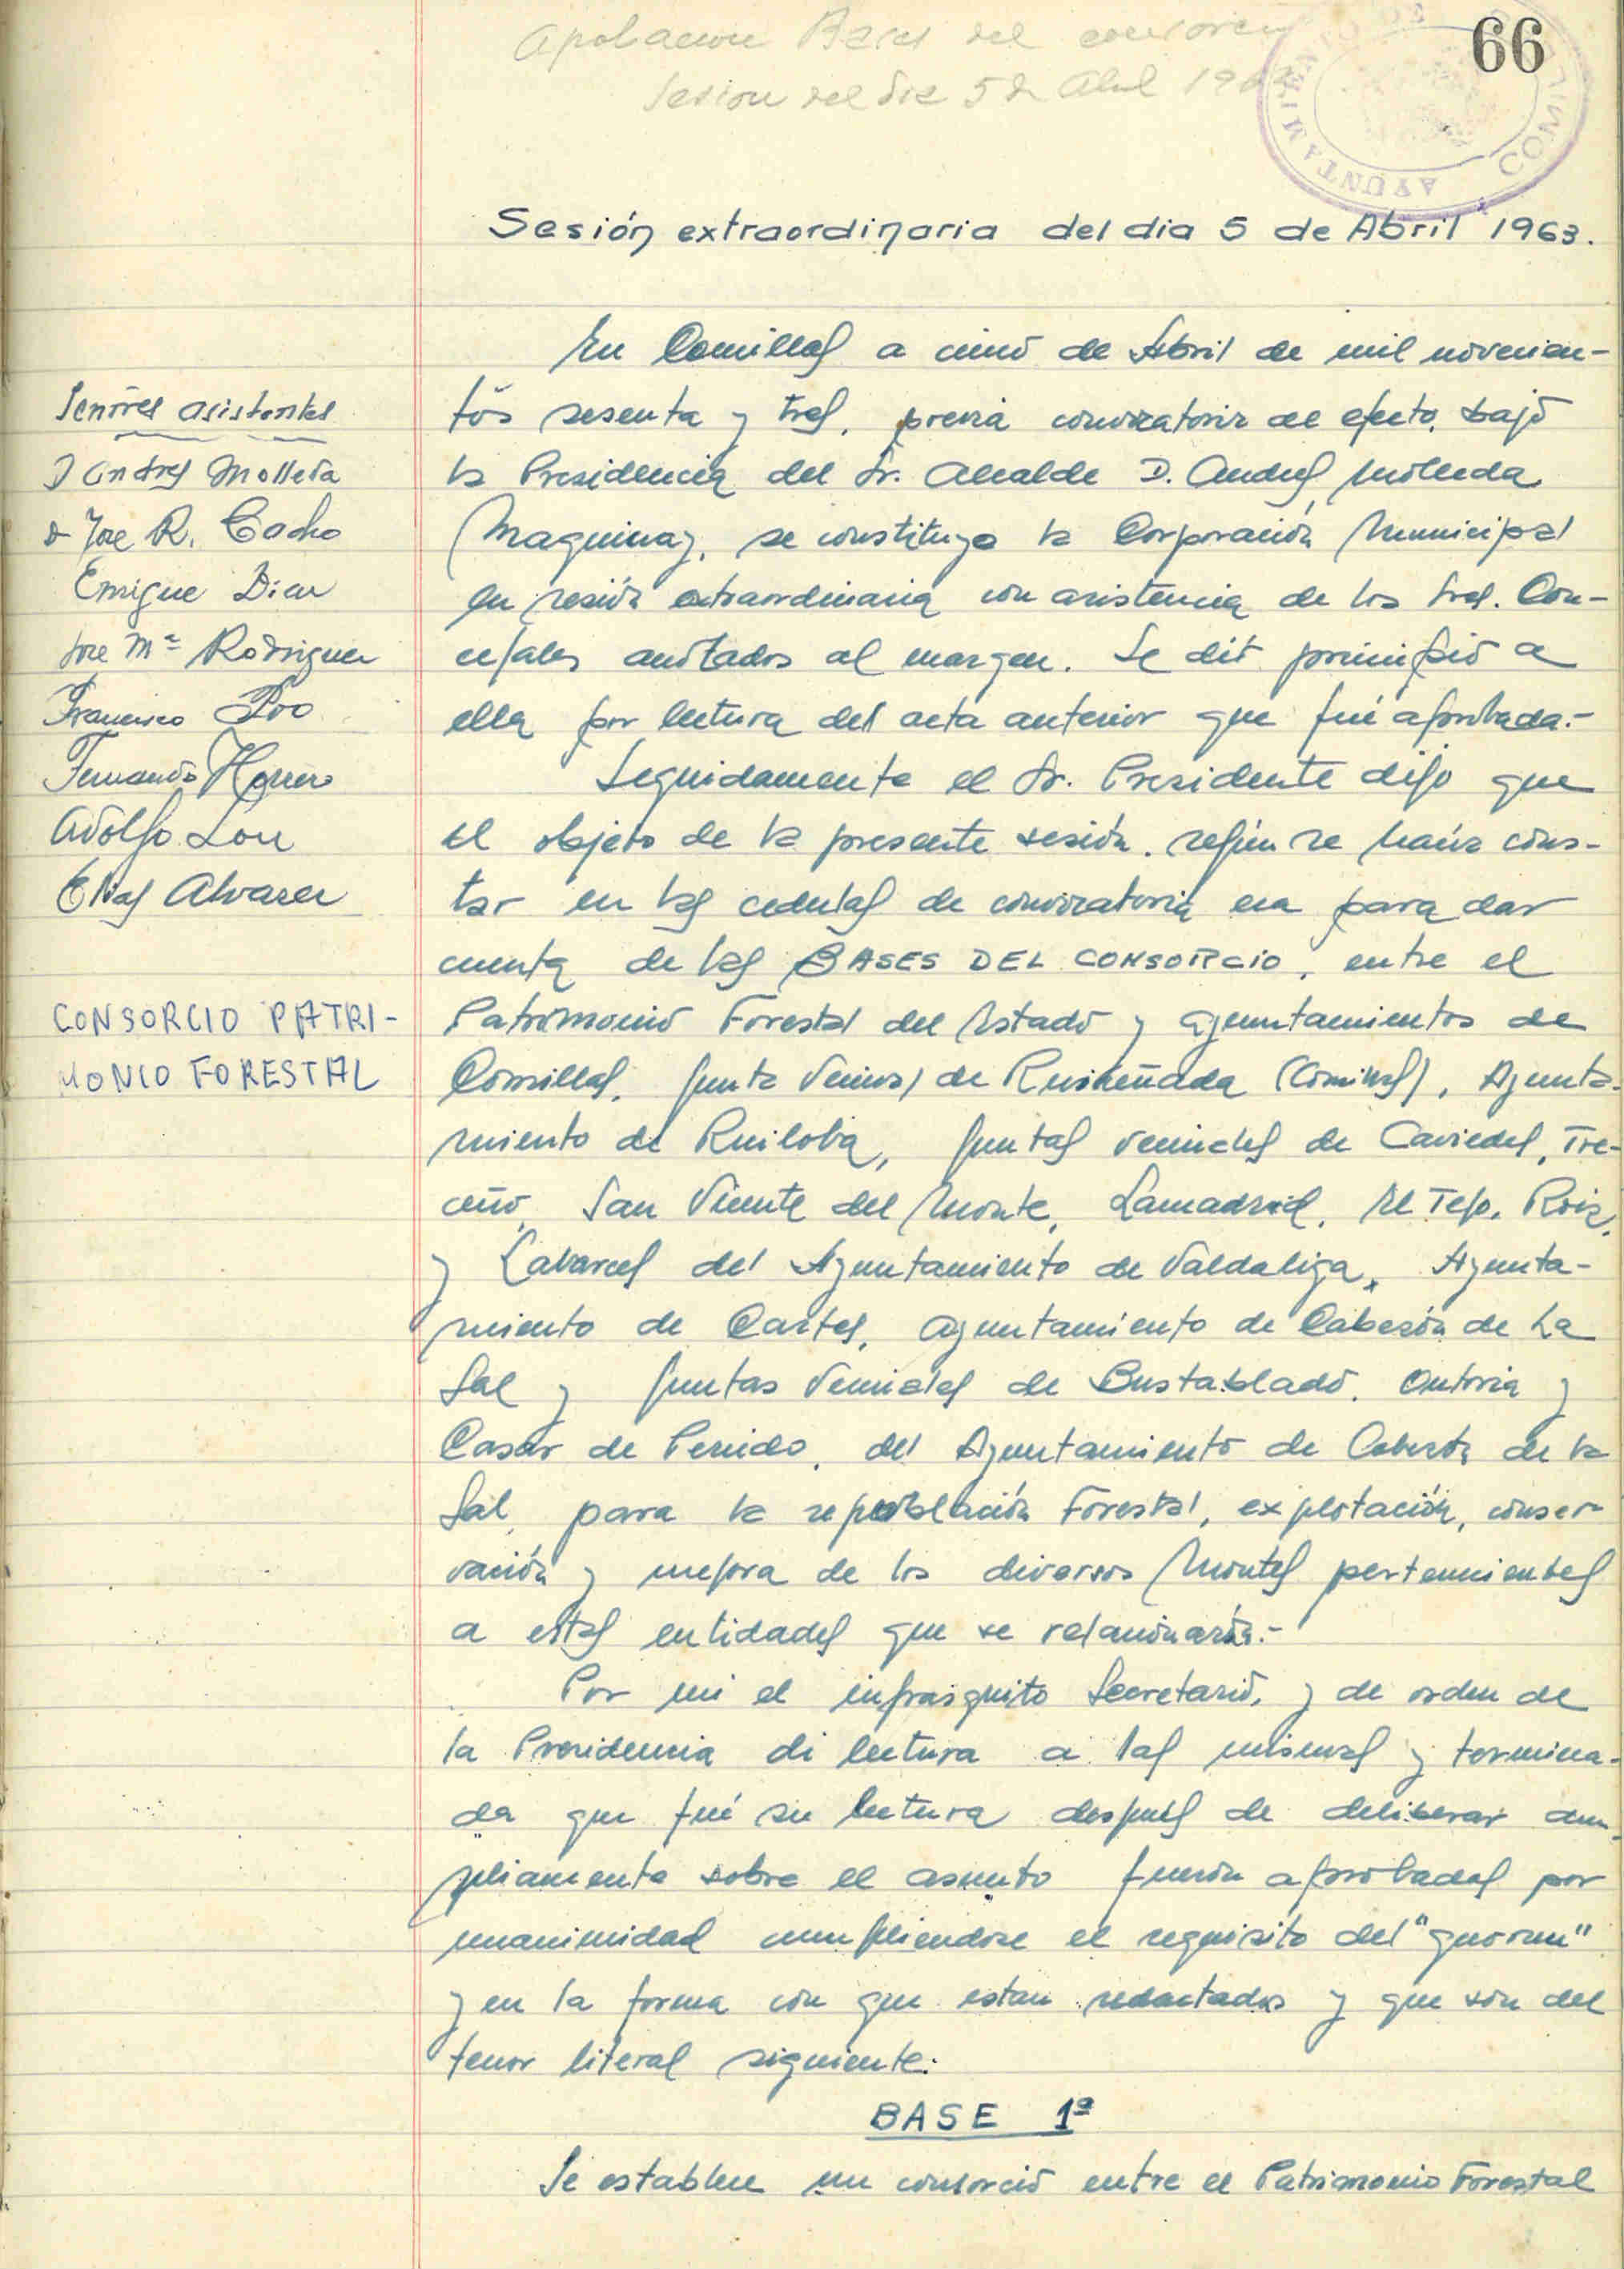 Apobacion Bases del consorcio
Sesion del dia 5 de Abril 1963
66
AYUNTAMIENTO DE COMILLAS
Sesión extraordinaria del dia 5 de Abril 1963.
En Comillas a cinco de Abril de mil novecien-
tos sesenta y tres, previa convocatoria al efecto, bajo
la Presidencia del Sr. Alcalde D. Andres Molleda
Maquinay, se constituyo la Corporación Municipal
en sesión extraordinaria con asistencia de los Sres. Con-
cejales anotados al margen. Se dió principio a
ella por lectura del acta anterior que fué aprobada.-
Señores asistentes
D Andres Molleda
D Jose R. Cacho
Enrique Diaz
Jose Mª Rodriguez
Francisco Poo
Fernando Herrero
Adolfo Lou
Elias Alvarez
Seguidamente el Sr. Presidente dijo que
el objeto de la presente sesión, según se hacía cons-
tar en las cedulas de convocatoria era para dar
cuenta de las BASES DEL CONSORCIO, entre el
CONSORCIO PATRI-
MONIO FORESTAL
Patrimonio Forestal del Estado y ayuntamientos de
Comillas, Junta Vecinal de Ruiseñada (Comillas), Ayunta-
miento de Ruiloba, Juntas vecinales de Caviedes, Tre-
ceño, San Vicente del Monte, Lamadrid, El Tejo, Roiz,
y Labarces del Ayuntamiento de Valdaliga, Ayunta-
miento de Cartes, Ayuntamiento de Cabezón de La
Sal y Juntas Vecinales de Bustablado, Ontoria y
Casar de Periedo, del Ayuntamiento de Cabezón de la
Sal, para la repoblación Forestal, explotación, conser-
vación y mejora de los diversos Montes pertenecientes
a estas entidades que se relacionarán.-
Por mi el infrasquito Secretario, y de orden de
la Presidencia di lectura a las mismas y termina-
da que fué su lectura después de deliberar am-
pliamente sobre el asunto fueron aprobadas por
unanimidad cumpliendose el requisito del "quorum"
y en la forma con que estan redactados y que son del
tenor literal siguiente:
BASE 1ª
Se establece un consorcio entre el Patrimonio Forestal